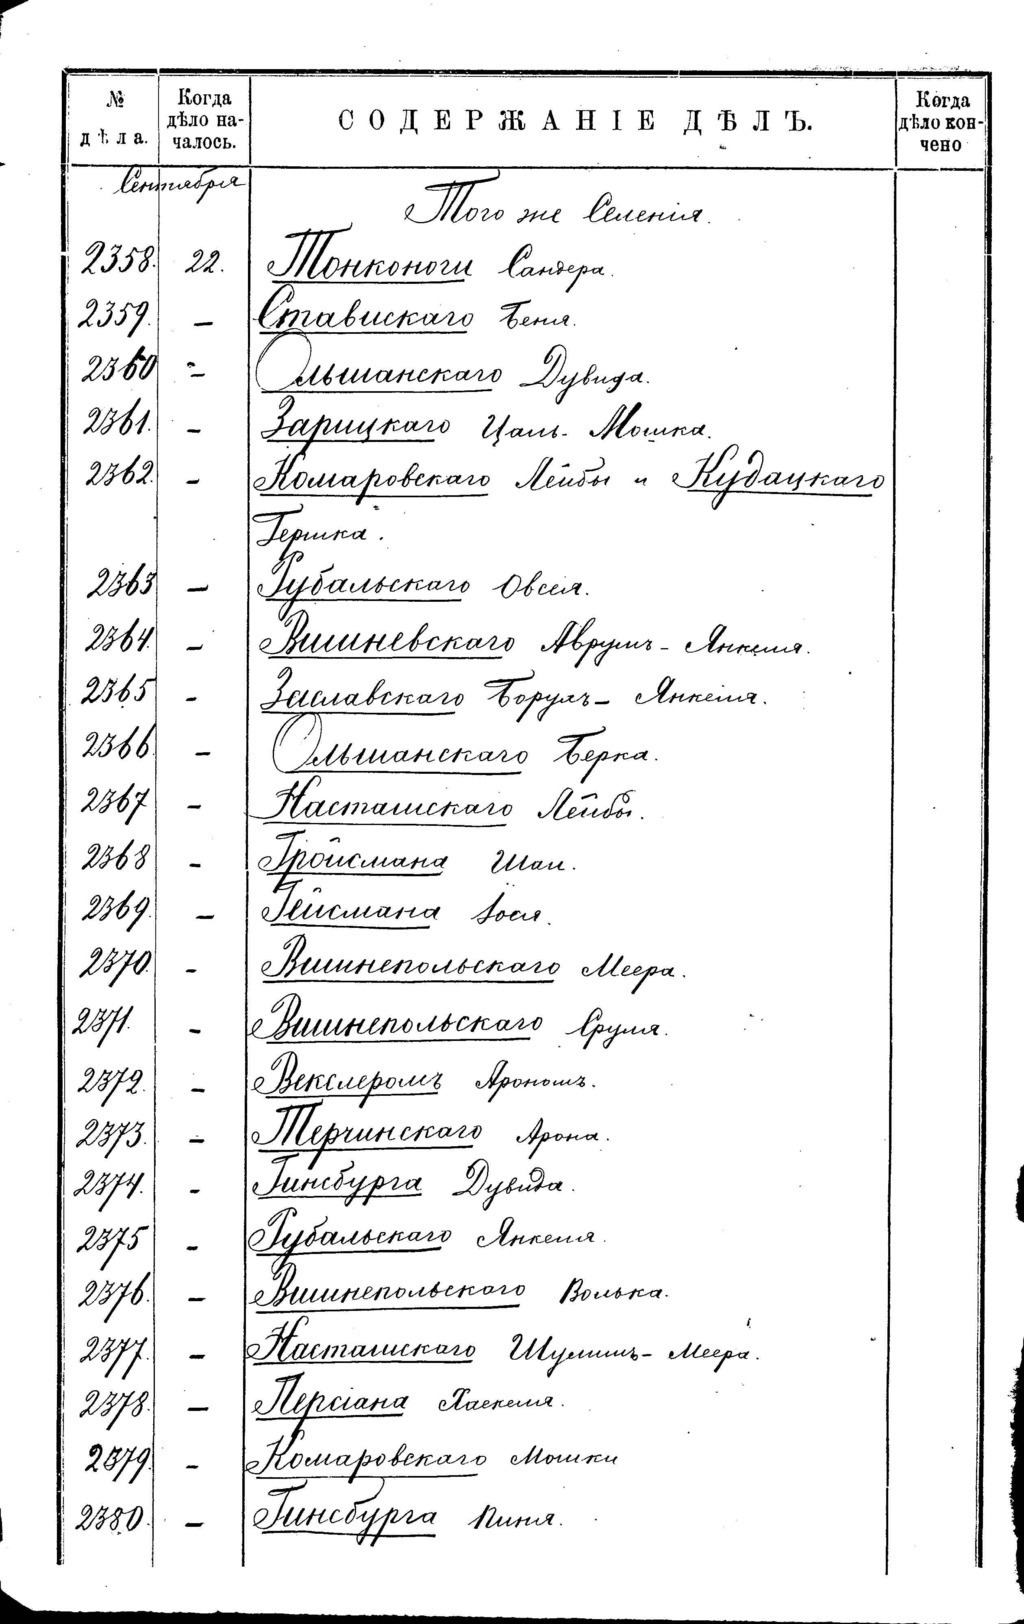 № дѣла.
Когда дѣло началось.
СОДЕРЖАНІЕ ДѢЛЪ.
Когда дѣло кончено
Сентября
Того же Селенія.
2358. 22. Тонконоги Сандера.
2359. — Ставискаго Беня.
2360 — Ольшанскаго Дувида.
2361. — Зарицкаго Цаль-Мошка.
2362. — Комаровскаго Лейбы и Кудацкаго
Гершка.
2363 — Рубальскаго Овсея.
2364. — Вишневскаго Аврумъ-Янкеля.
2365 — Заславскаго Борухъ-Янкеля.
2366. — Ольшанскаго Берка.
2367 — Насташскаго Лейбы.
2368 — Гройсмана Шаи.
2369. — Гейсмана Іося.
2370. — Вишнепольскаго Меера.
2371. — Вишнепольскаго Сруля.
2372. — Векслеромъ Арономъ.
2373. — Терчинскаго Арона.
2374. — Гинсбурга Дувида.
2375 — Рубальскаго Янкеля.
2376. — Вишнепольскаго Волька.
2377. — Насташскаго Шулимъ-Меера.
2378. — Персіана Хаскеля.
2379. — Комаровскаго Мошки
2380. — Гинсбурга Пиня.